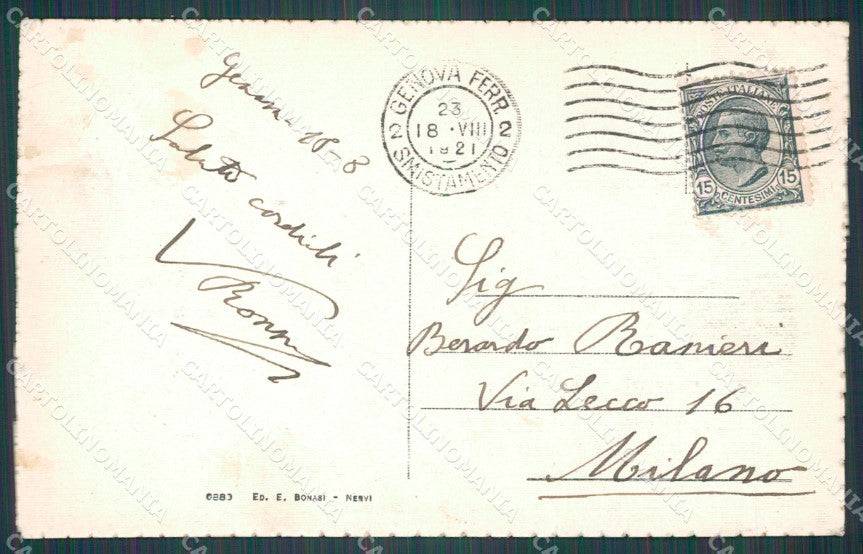 Genova 18-8
Saluti cordiali
GENOVA FERR.
23
18 · VIII
1921
2 2
SMISTAMENTO
POSTE ITALIANE
15 15
CENTESIMI
Sig
Berardo Ranieri
Via Lecco 16
Milano
ED. E. BONASI - NERVI
CARTOLINOMANIA